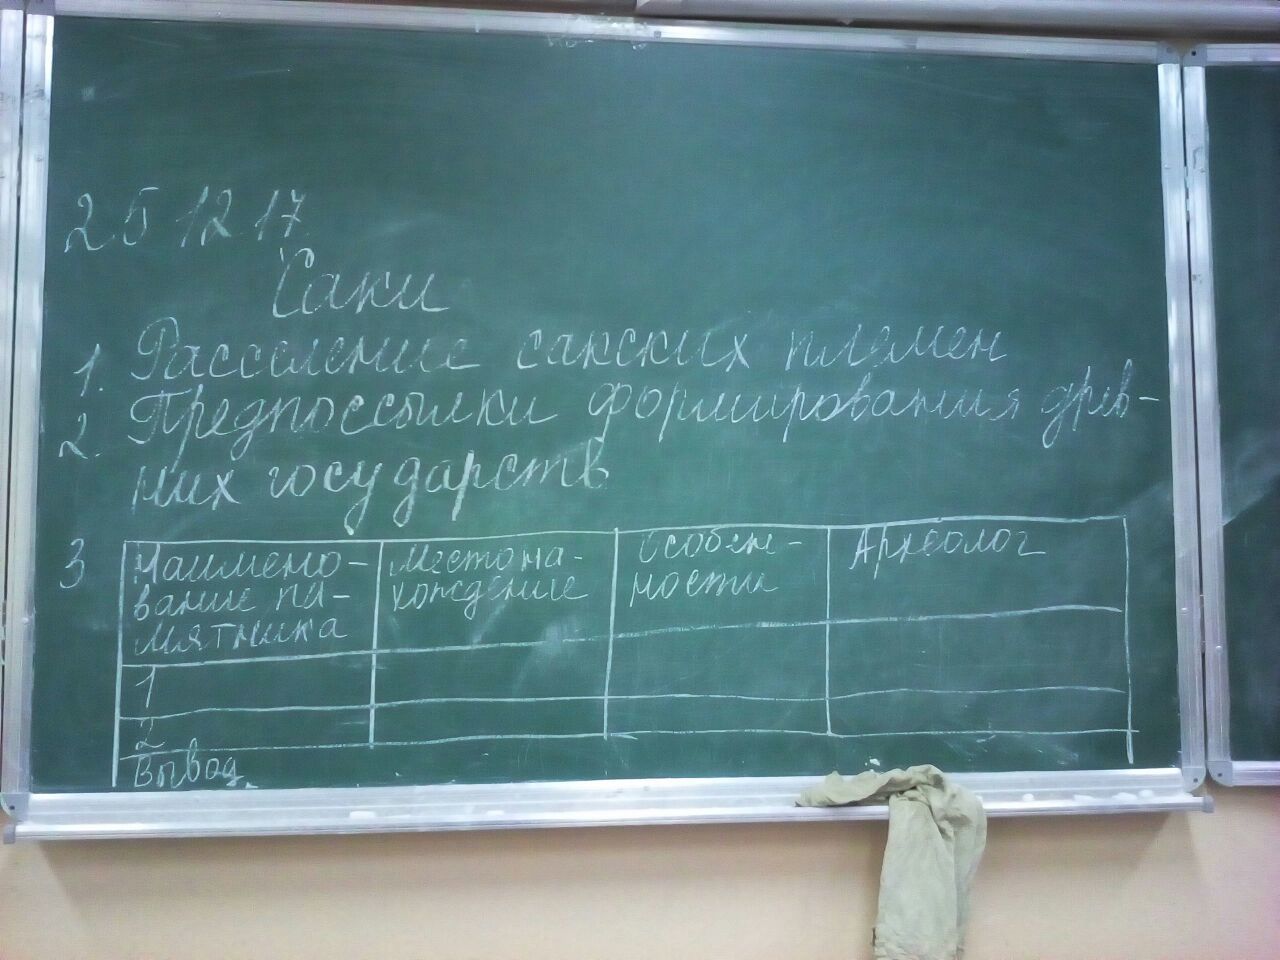 25 12 17
Саки
1. Расселение сакских племен
2. Предпоссылки формирования древ-
них государств
3 Наимено-
вание па-
мятника
Местона-
хождение
Особен-
ности
Археолог
1
2
Вывод